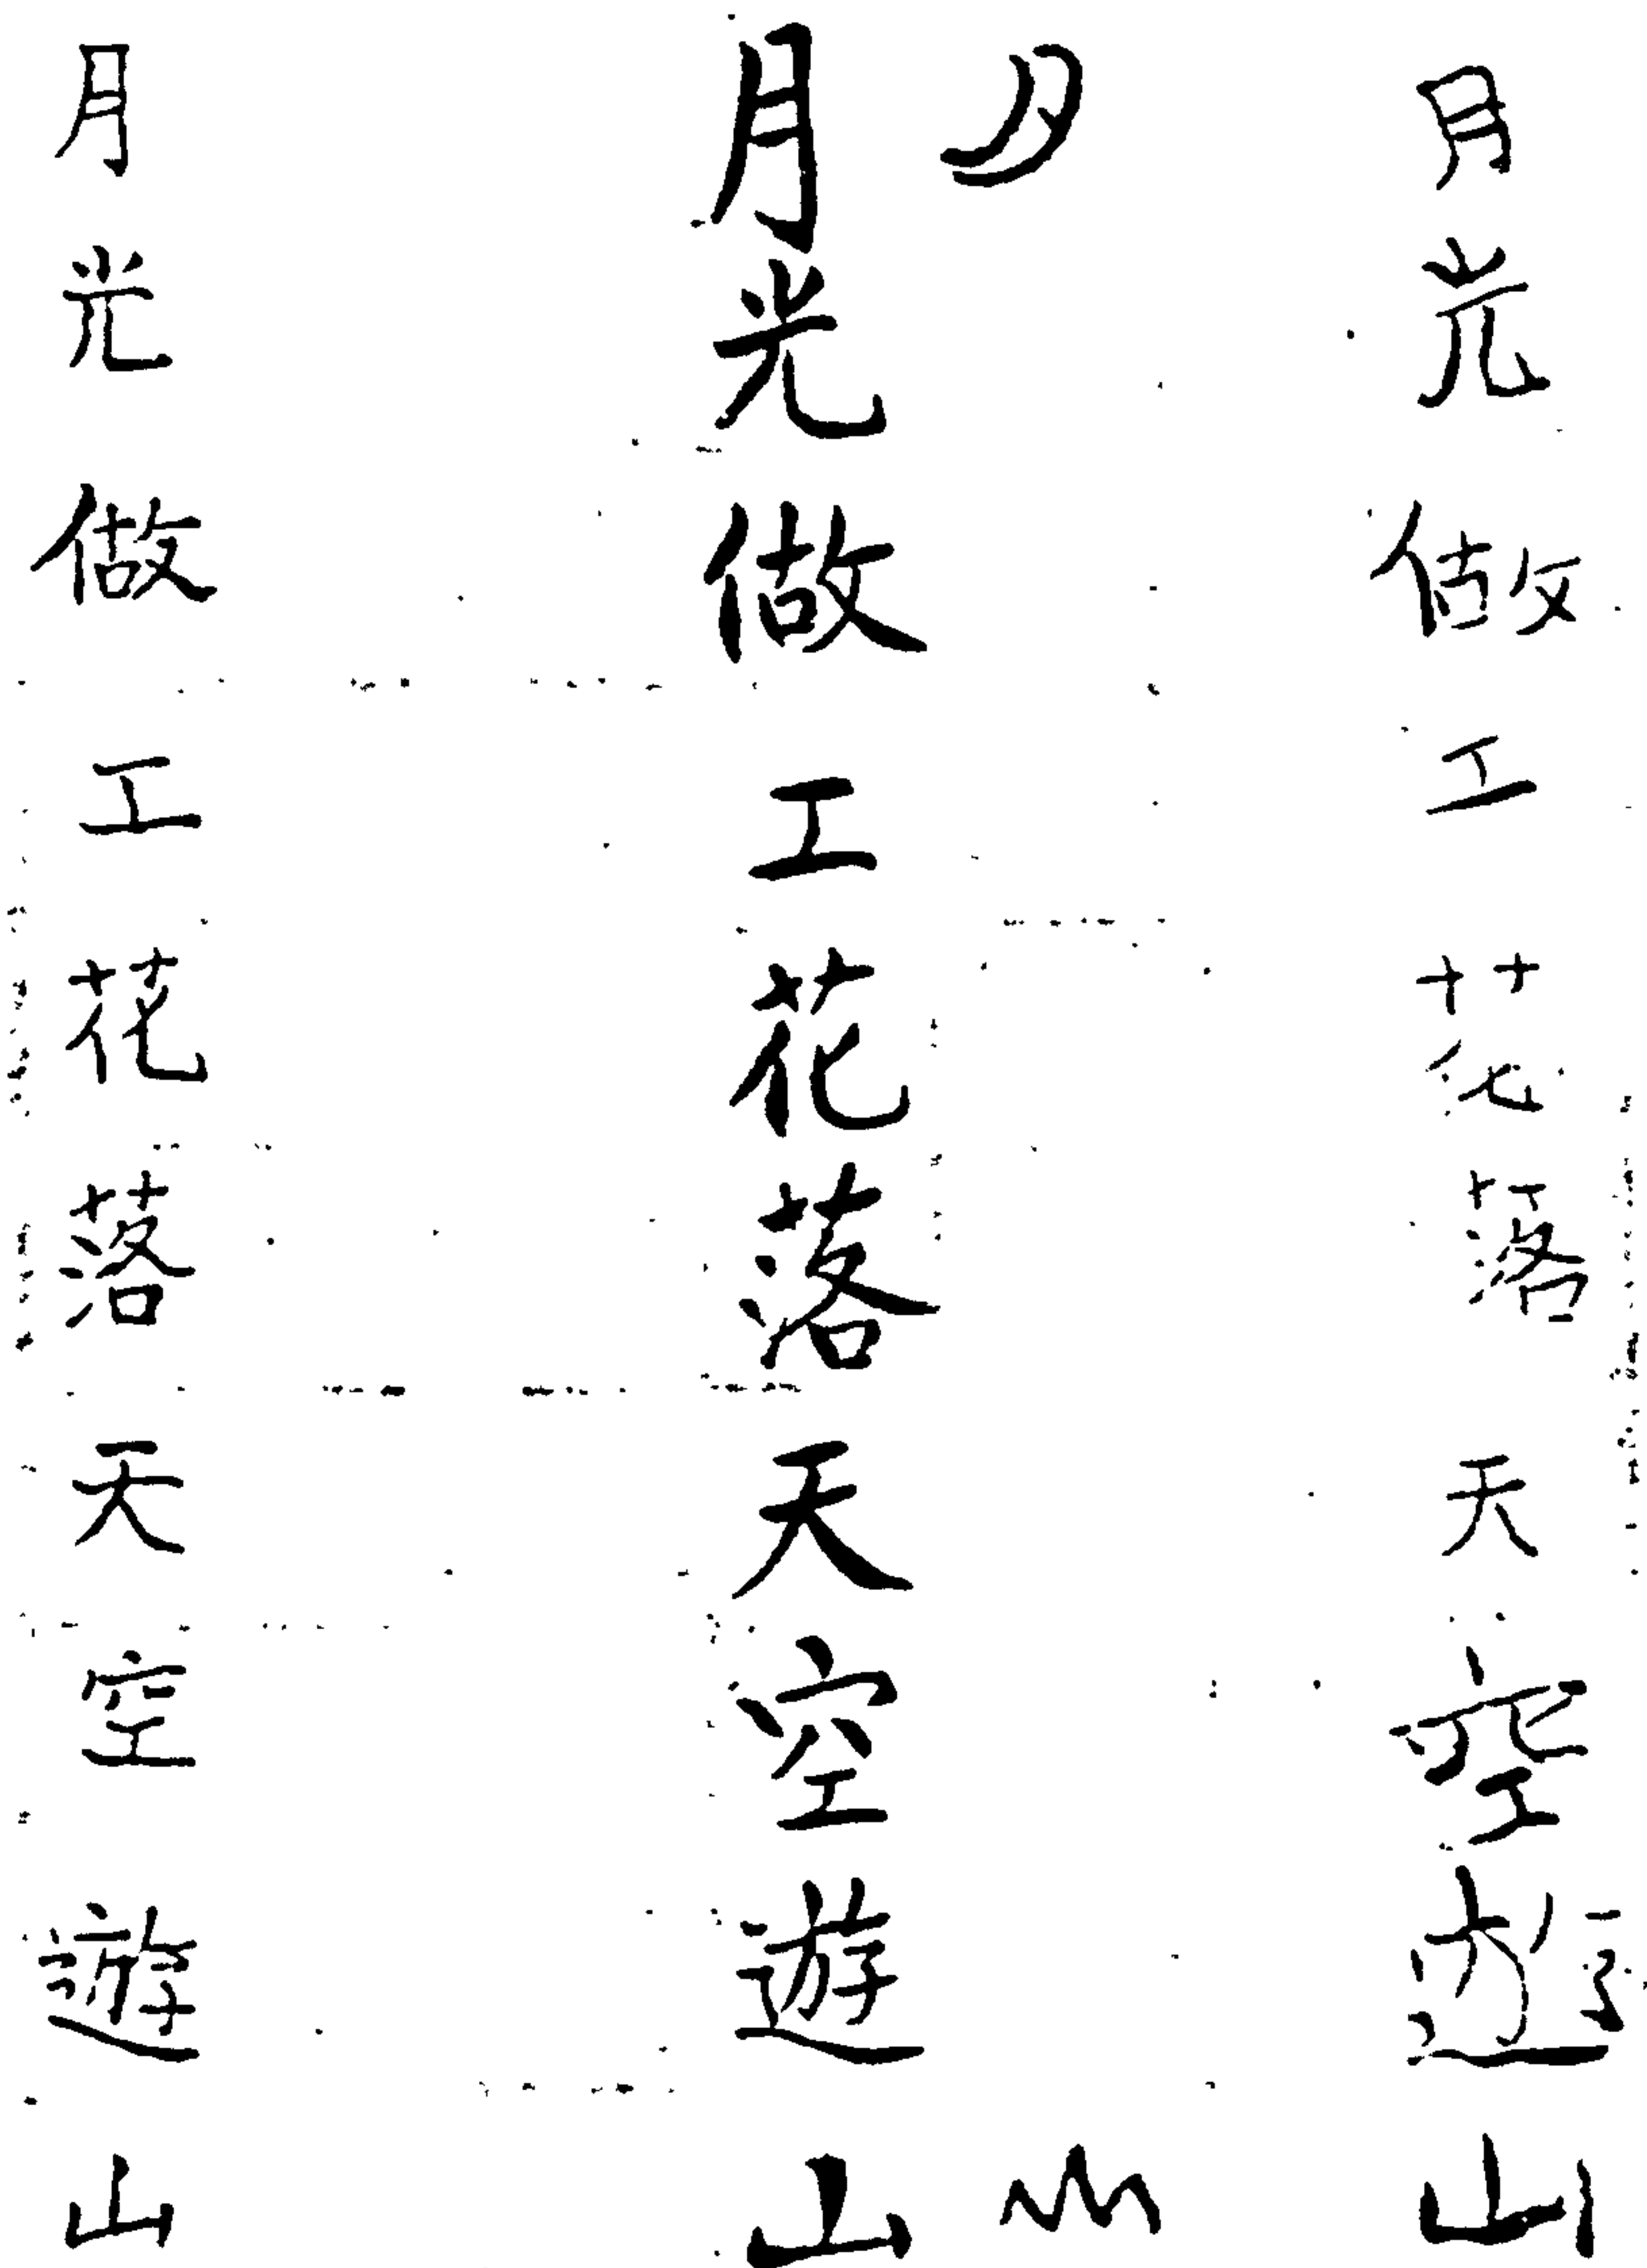 月光做工花落天空遊山
月光做工花落天空遊山
月光做工花落天空遊山